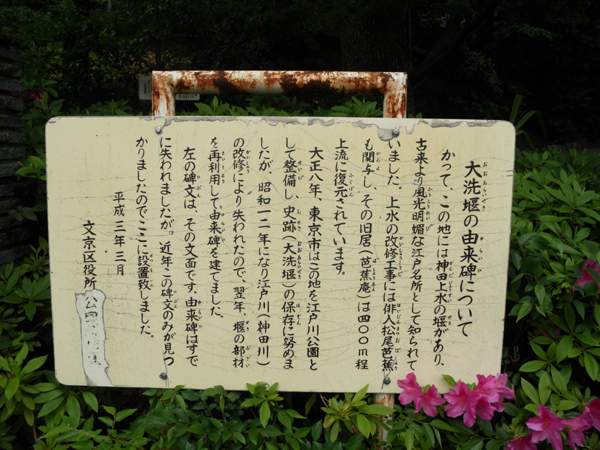 大洗堰の由来碑について
かつて、この地には神田上水の堰があり、
古来より風光明媚な江戸名所として知られて
いました。上水の改修工事には俳人松尾芭蕉
も関与し、その旧居（芭蕉庵）は四〇〇ｍ程
上流に復元されています。
大正八年、東京市はこの地を江戸川公園と
して整備し、史跡（大洗堰）の保存に努めま
したが、昭和一二年になり江戸川（神田川）
の改修により失われたので、翌年、堰の部材
を再利用して由来碑を建てました。
左の碑文は、その文面です。由来碑はすで
に失われましたが、近年この碑文のみが見つ
かりましたのでここに設置致しました。
平成三年三月
文京区役所